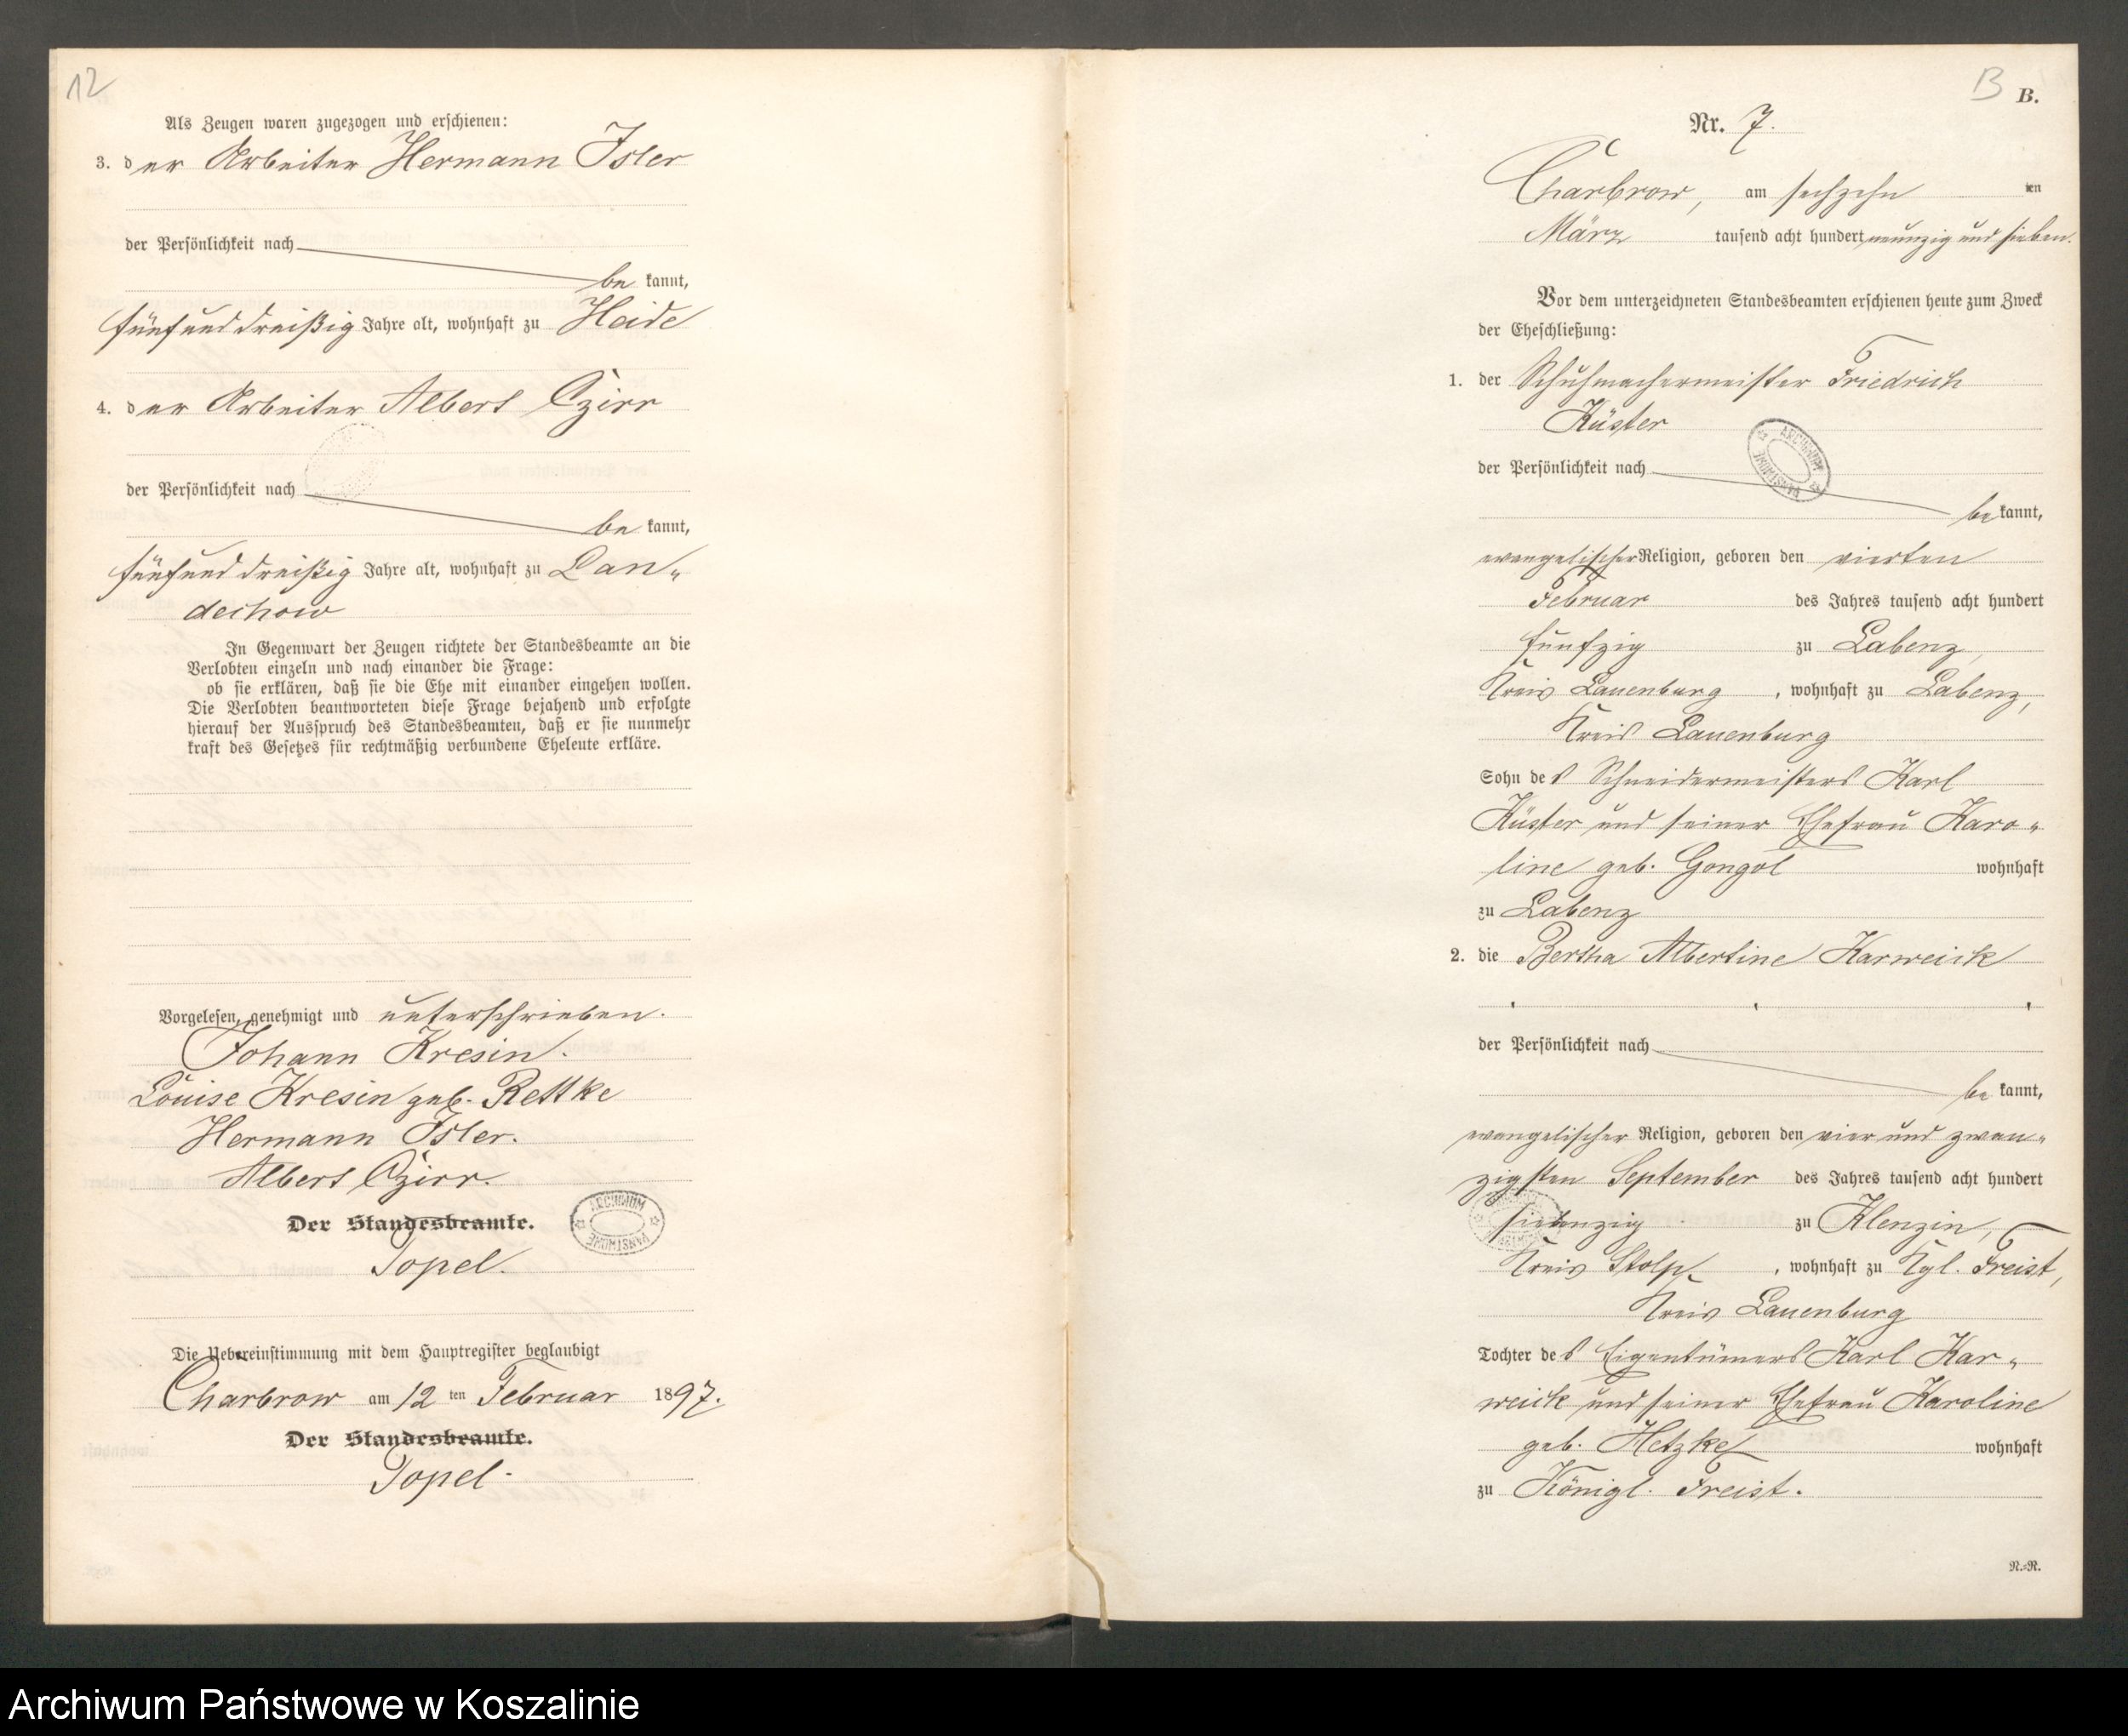 12
Als Zeugen waren zugezogen und erschienen:
3. der Arbeiter Hermann Isler
der Persönlichkeit nach
be kannt,
fünfunddreißig Jahre alt, wohnhaft zu Heide
4. der Arbeiter Albert Czirr
der Persönlichkeit nach
be kannt,
fünfunddreißig Jahre alt, wohnhaft zu Lan-
dechow
In Gegenwart der Zeugen richtete der Standesbeamte an die
Verlobten einzeln und nach einander die Frage:
ob sie erklären, daß sie die Ehe mit einander eingehen wollen.
Die Verlobten beantworteten diese Frage bejahend und erfolgte
hierauf der Ausspruch des Standesbeamten, daß er sie nunmehr
kraft des Gesetzes für rechtmäßig verbundene Eheleute erkläre.
Vorgelesen, genehmigt und unterschrieben.
Johann Kresin.
Louise Kresin geb. Rettke
Hermann Isler.
Albert Czirr.
Der Standesbeamte.
ARCHIWUM PAŃSTWOWE
Topel.
Die Uebereinstimmung mit dem Hauptregister beglaubigt
Charbrow am 12 ten Februar 1897.
Der Standesbeamte.
Topel.
B B.
Nr. 7.
Charbrow, am sechzehn ten
März tausend acht hundert neunzig und sieben.
Vor dem unterzeichneten Standesbeamten erschienen heute zum Zweck
der Eheschließung:
1. der Schuhmachermeister Friedrich
Küster
ARCHIWUM PAŃSTWOWE
der Persönlichkeit nach
be kannt,
evangelischer Religion, geboren den vierten
Februar des Jahres tausend acht hundert
fünfzig zu Labenz,
Kreis Lauenburg, wohnhaft zu Labenz,
Kreis Lauenburg
Sohn des Schneidermeisters Karl
Küster und seiner Ehefrau Karo-
line geb. Gongol wohnhaft
zu Labenz
2. die Bertha Albertine Karweick
der Persönlichkeit nach
be kannt,
evangelischer Religion, geboren den vier und zwan-
zigsten September des Jahres tausend acht hundert
siebenzig zu Klenzin,
Kreis Stolp, wohnhaft zu Kgl. Freist,
Kreis Lauenburg
Tochter des Eigentümers Karl Kar-
weick und seiner Ehefrau Karoline
geb. Hetzke wohnhaft
zu Königl. Freist.
N.=R.
Archiwum Państwowe w Koszalinie